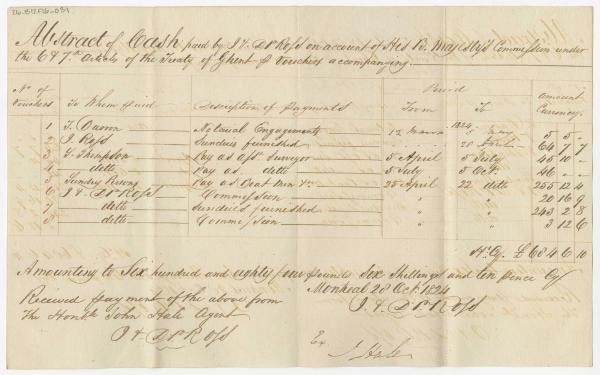 Abstract of Cash paid by J & Dd Ross on account of His B. Majesty's Commission under
the 6 & 7th Articles of the Treaty of Ghent & Vouchers accompanying.
No of Vouchers To Whom paid Description of payments Period From To Amount Currency
1824
1 Notarial Engagements 12 May 5 5 -
2 J Ross Sundries furnished " 28 64 7 7
3 Thompson Pay as asst Surveyor 5 April 5 July 45 10 -
4 ditto Pay as ditto 5 July 5 Oct. 46 - -
5 Sundry Persons Pay as Boat Men &c 25 April 22 ditto 255 12 4
6 J & Dd Ross Commission " 20 16 9
7 ditto Sundries furnished " 243 2 8
8 ditto Commission " 3 12 6
£ 684 6 10
Amounting to Six hundred and eighty four pounds Six Shillings and ten pence Cy
Montreal 28 Oct. 1824
J & Dd Ross
Received payment of the above from
The Honble John Hale Agent
J & Dd Ross
Ex.
J Hale